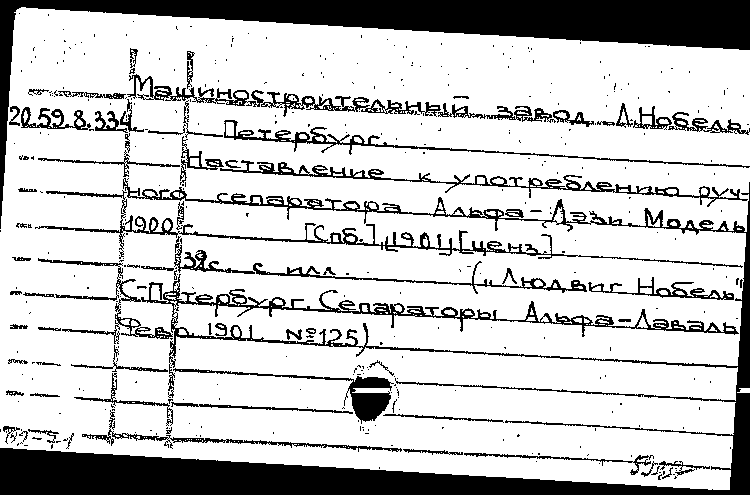 Машиностроительный завод Л.Нобель.
20.59.8.334
Петербург.
Наставление к употреблению руч-
ного сепаратора Альфа-Дэзи. Модель
1900 г. [Спб.], 1901, [ценз.].
32с. с илл. („Людвиг Нобель"
С.-Петербург. Сепараторы Альфа-Лаваль
Февр. 1901. №125).